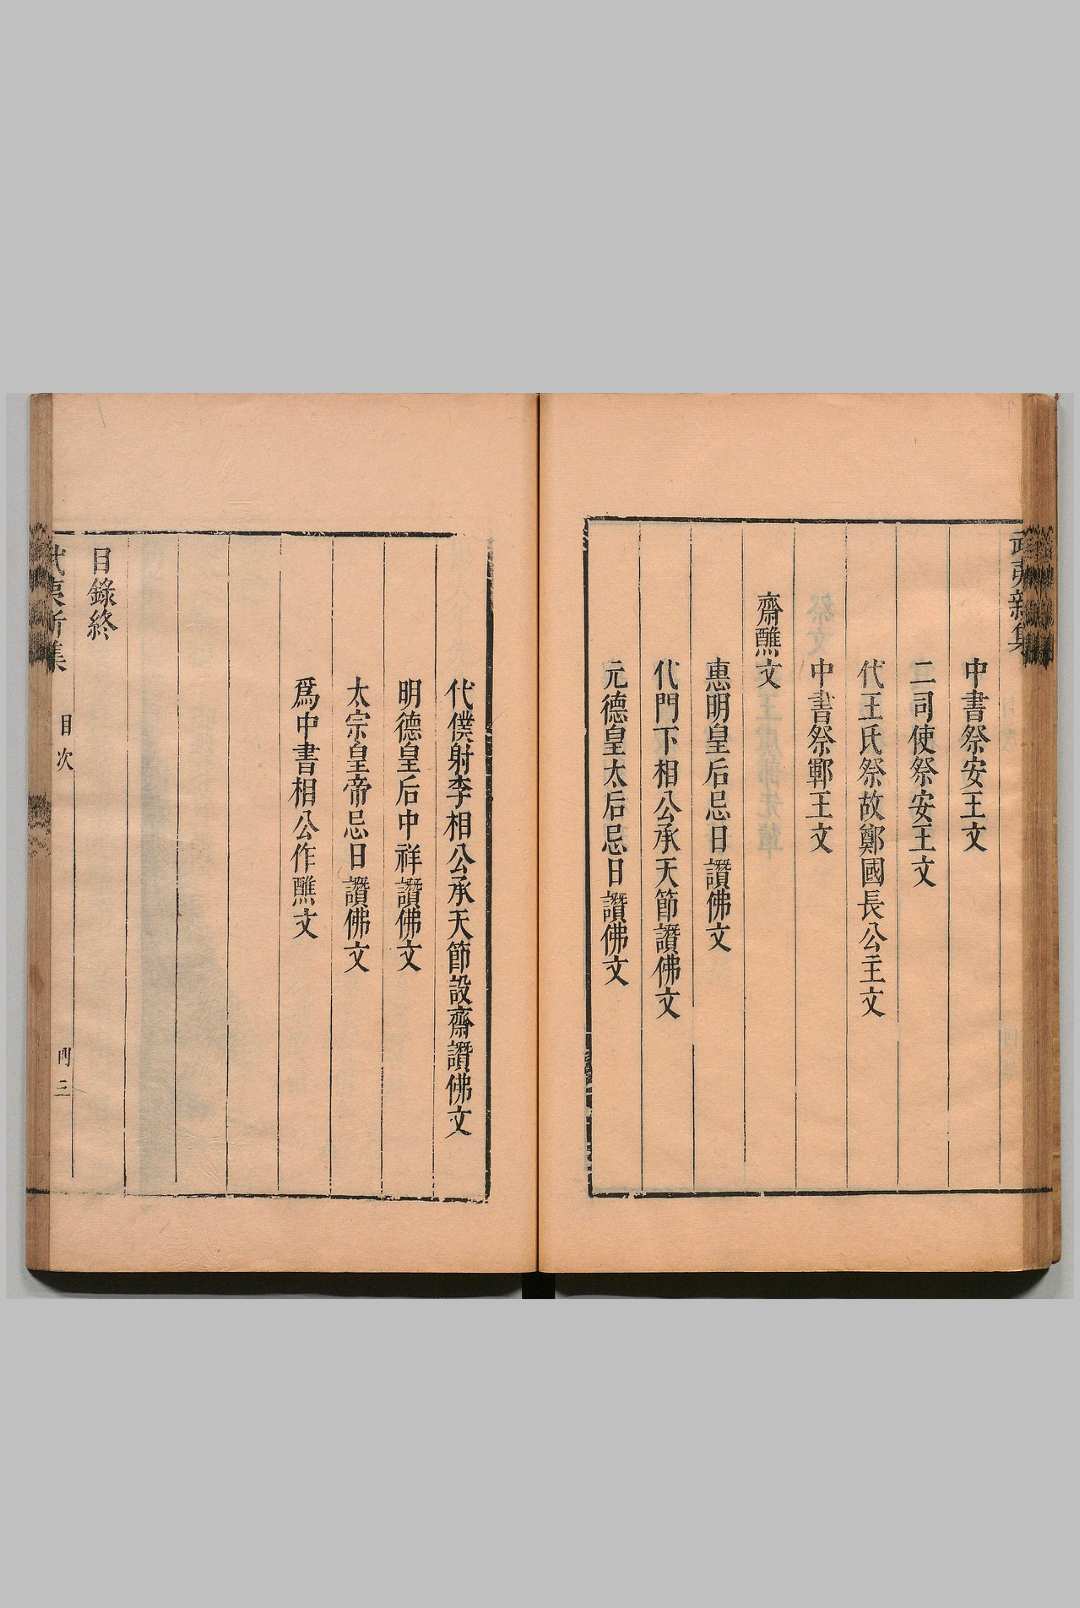 武夷新集
中書祭安王文
二司使祭安王文
代王氏祭故鄭國長公主文
中書祭鄆王文
齋醮文
惠明皇后忌日讚佛文
代門下相公承天節讚佛文
元德皇太后忌日讚佛文
代僕射李相公承天節設齋讚佛文
明德皇后中祥讚佛文
太宗皇帝忌日讚佛文
爲中書相公作醮文
目錄終
武夷新集 目次